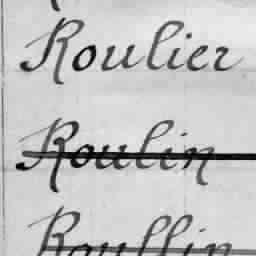 Roulier
Roulin
Roullin